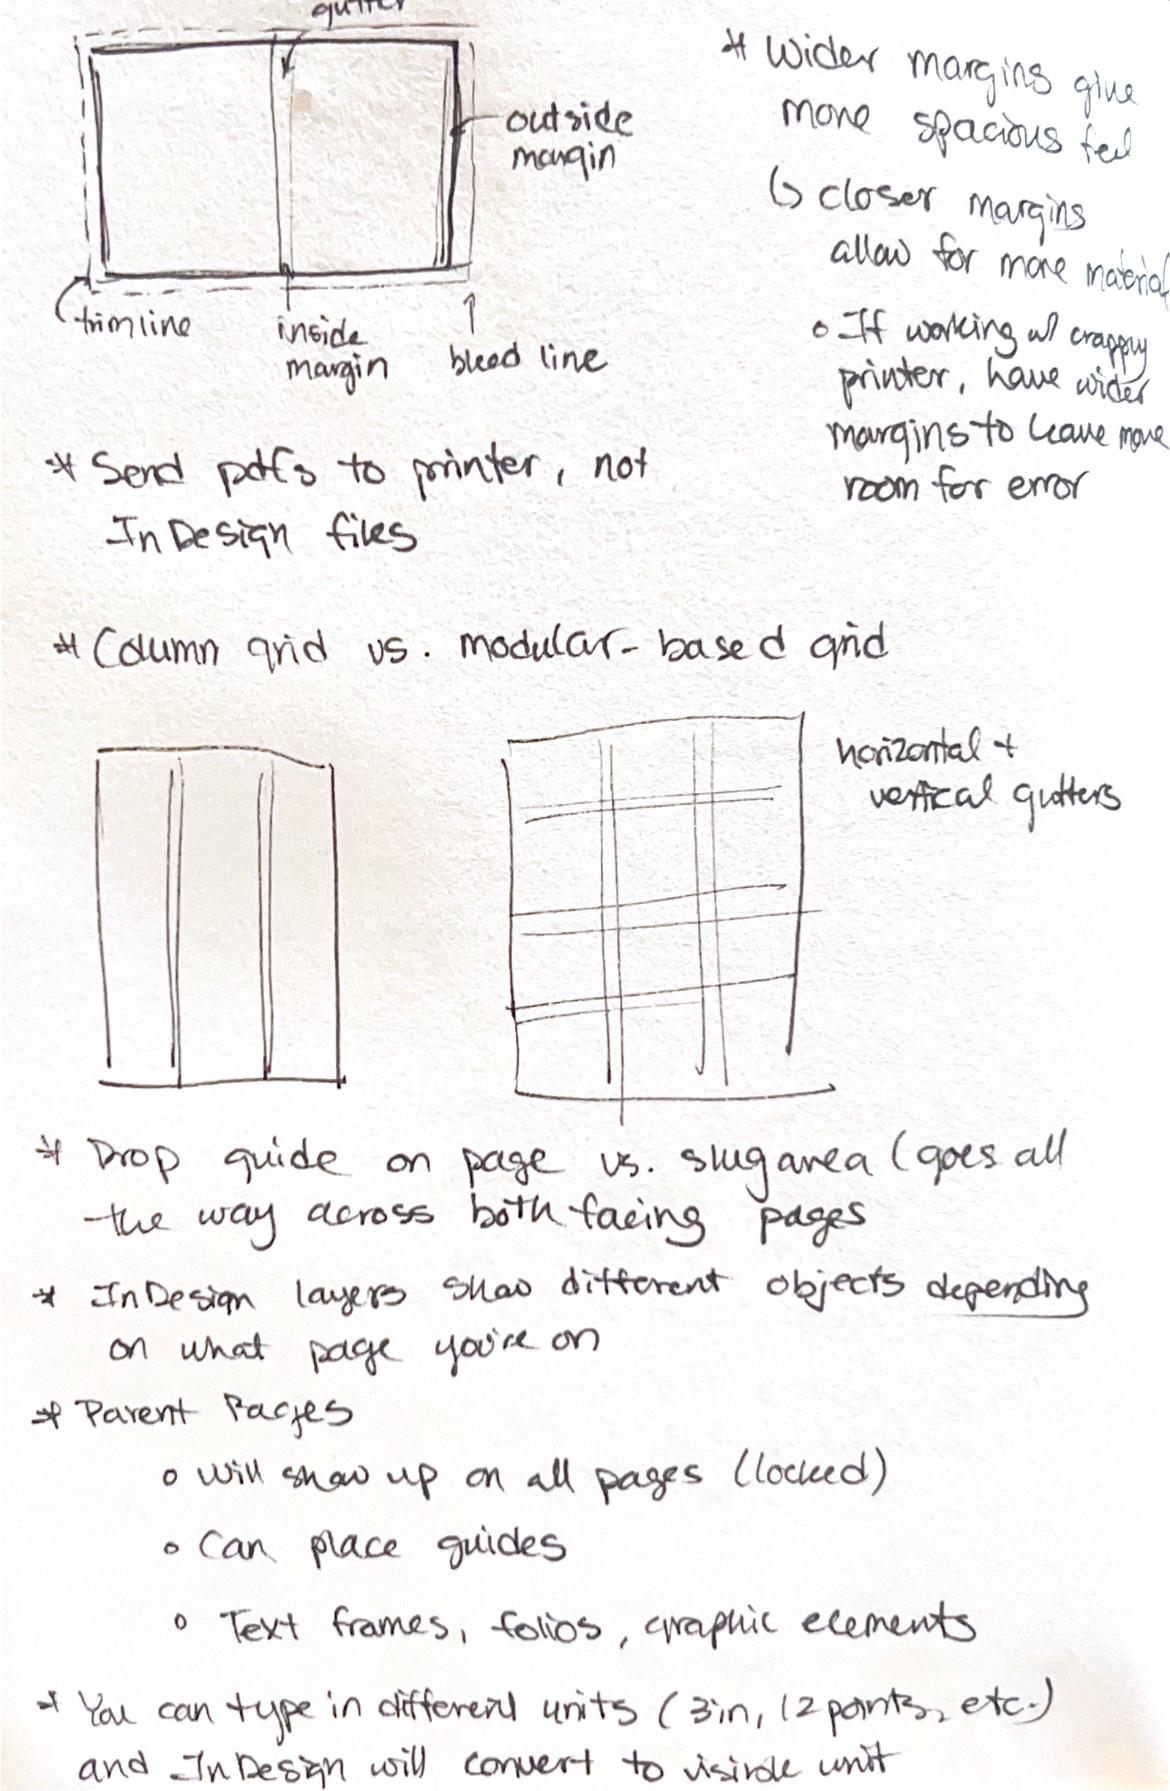 gutter
outside
margin
trimline
inside
margin
bleed line
* Wider margins give
more spacious feel
↳ closer margins
allow for more material
o If working w/ crappy
printer, have wider
margins to leave more
room for error
* Send pdfs to printer, not
InDesign files
* Column grid vs. modular-based grid
horizontal +
vertical gutters
* Drop guide on page vs. slug area (goes all
the way across both facing pages
* InDesign layers show different objects depending
on what page you're on
* Parent Pages
o Will show up on all pages (locked)
o Can place guides
o Text frames, folios, graphic elements
* You can type in different units (3in, 12 points, etc.)
and InDesign will convert to visible unit